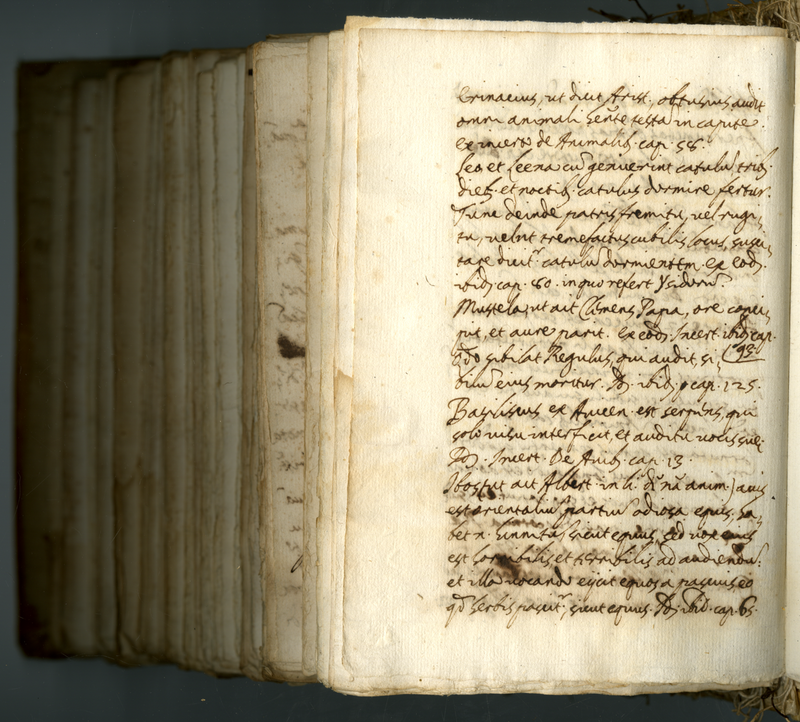 Erinacius, ut dicit Arist., obtusius audit
omni animali hēnte testā in capite.
ex incerto de Animalib. cap. 58.
Leo et Leena cū genuerint catulū trib.
dieb. et noctib. catulus dormire fertur.
Tunc deinde patris fremitu, vel rugi,
tu, velut tremefactus cubilis locus, susci,
tare dicit.r catulū dormientem. ex eod.
ibid. cap. 80. in quo refert Ysidorū.
Mustela, ut ait Clemens Papa, ore conci,
pit, et aure parit. ex eod. Incert. ibid. cap.
Qdo sibilat Regulus, qui audit, si, (93.
bilū eius moritur. ibid. cap. 125.
Basiliscus ex Avicen. est serpens, qui
solo visu interficit, et auditu vocis suę.
Incert. De Avib. cap. 13.
Ibos (ut ait Albert. in li. dē nā anim.) avis
est orientaliū partiū odiosa equis. ha,
bet n. hinnitus sicut equus, sed vox eius
est horribilis et terribilis ad audiendū:
et illo vocando eijcit equos a pascuis eo
qd herbis pascit.r, sicut equus. ibid. cap. 65.